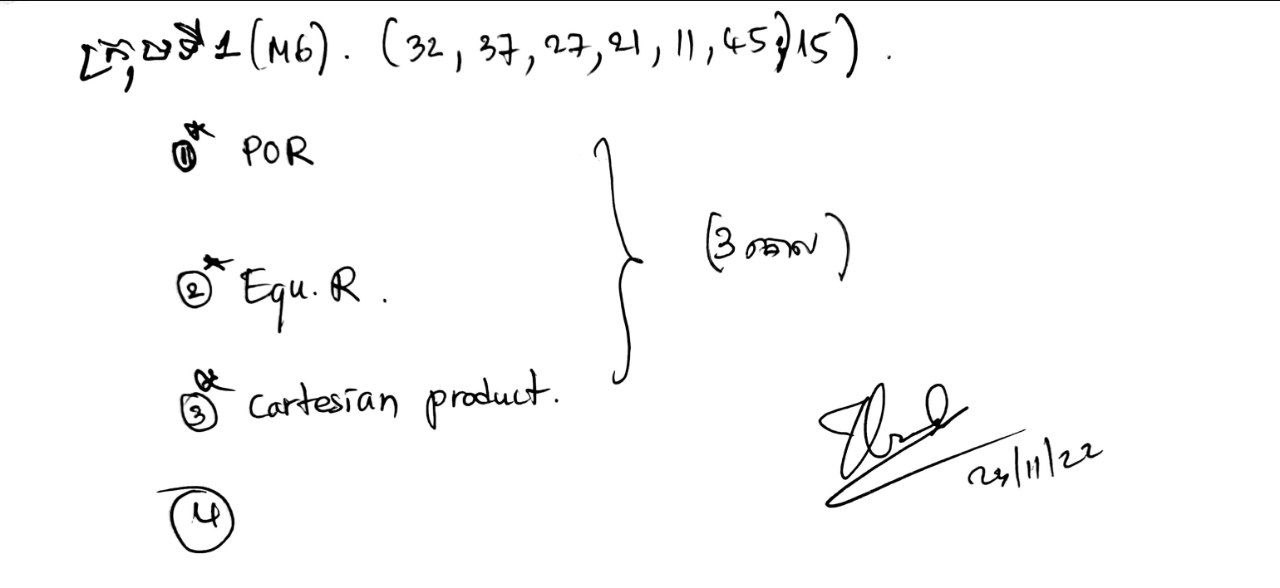 ក្រុមទី 1 (M6). (32, 37, 27, 21, 11, 45, 15).
① * POR
② * Equ. R.
(3
③ * Cartesian product.
/11/22
④